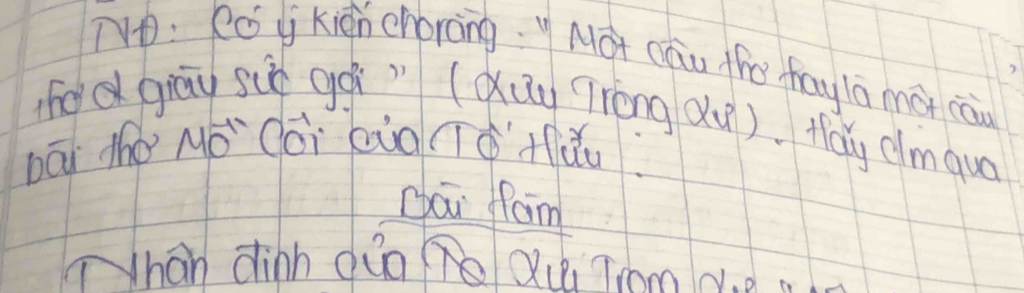 NĐ: Có ý kiến cho rằng: "Một câu thơ hay là một câu
thơ giàu sức gợi" (Lưu Trọng Lư). Hãy c/m qua
bài thơ Mồ Côi của Tố Hữu.
Bài làm
Nhận định của Lưu Trọng Lư